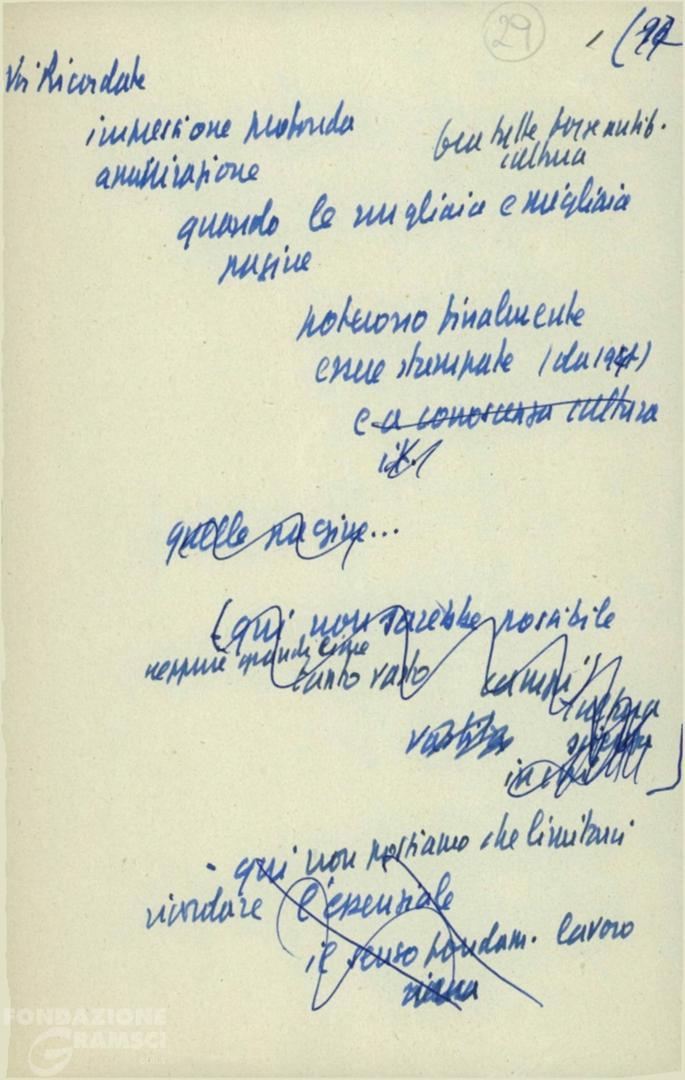 29
Voi Ricordate
impressione profonda
ammirazione
cultura
quando le migliaia e migliaia
pagine
poterono finalmente
essere stampate (da 1947)
e a conoscenza cultura
quelle pagine...
(qui non sarebbe possibile
neppure grandi linee
tanto vasto campi
vastità
qui non possiamo che limitarci
ricordare l'essenziale
il senso fondam. lavoro
FONDAZIONE
GRAMSCI